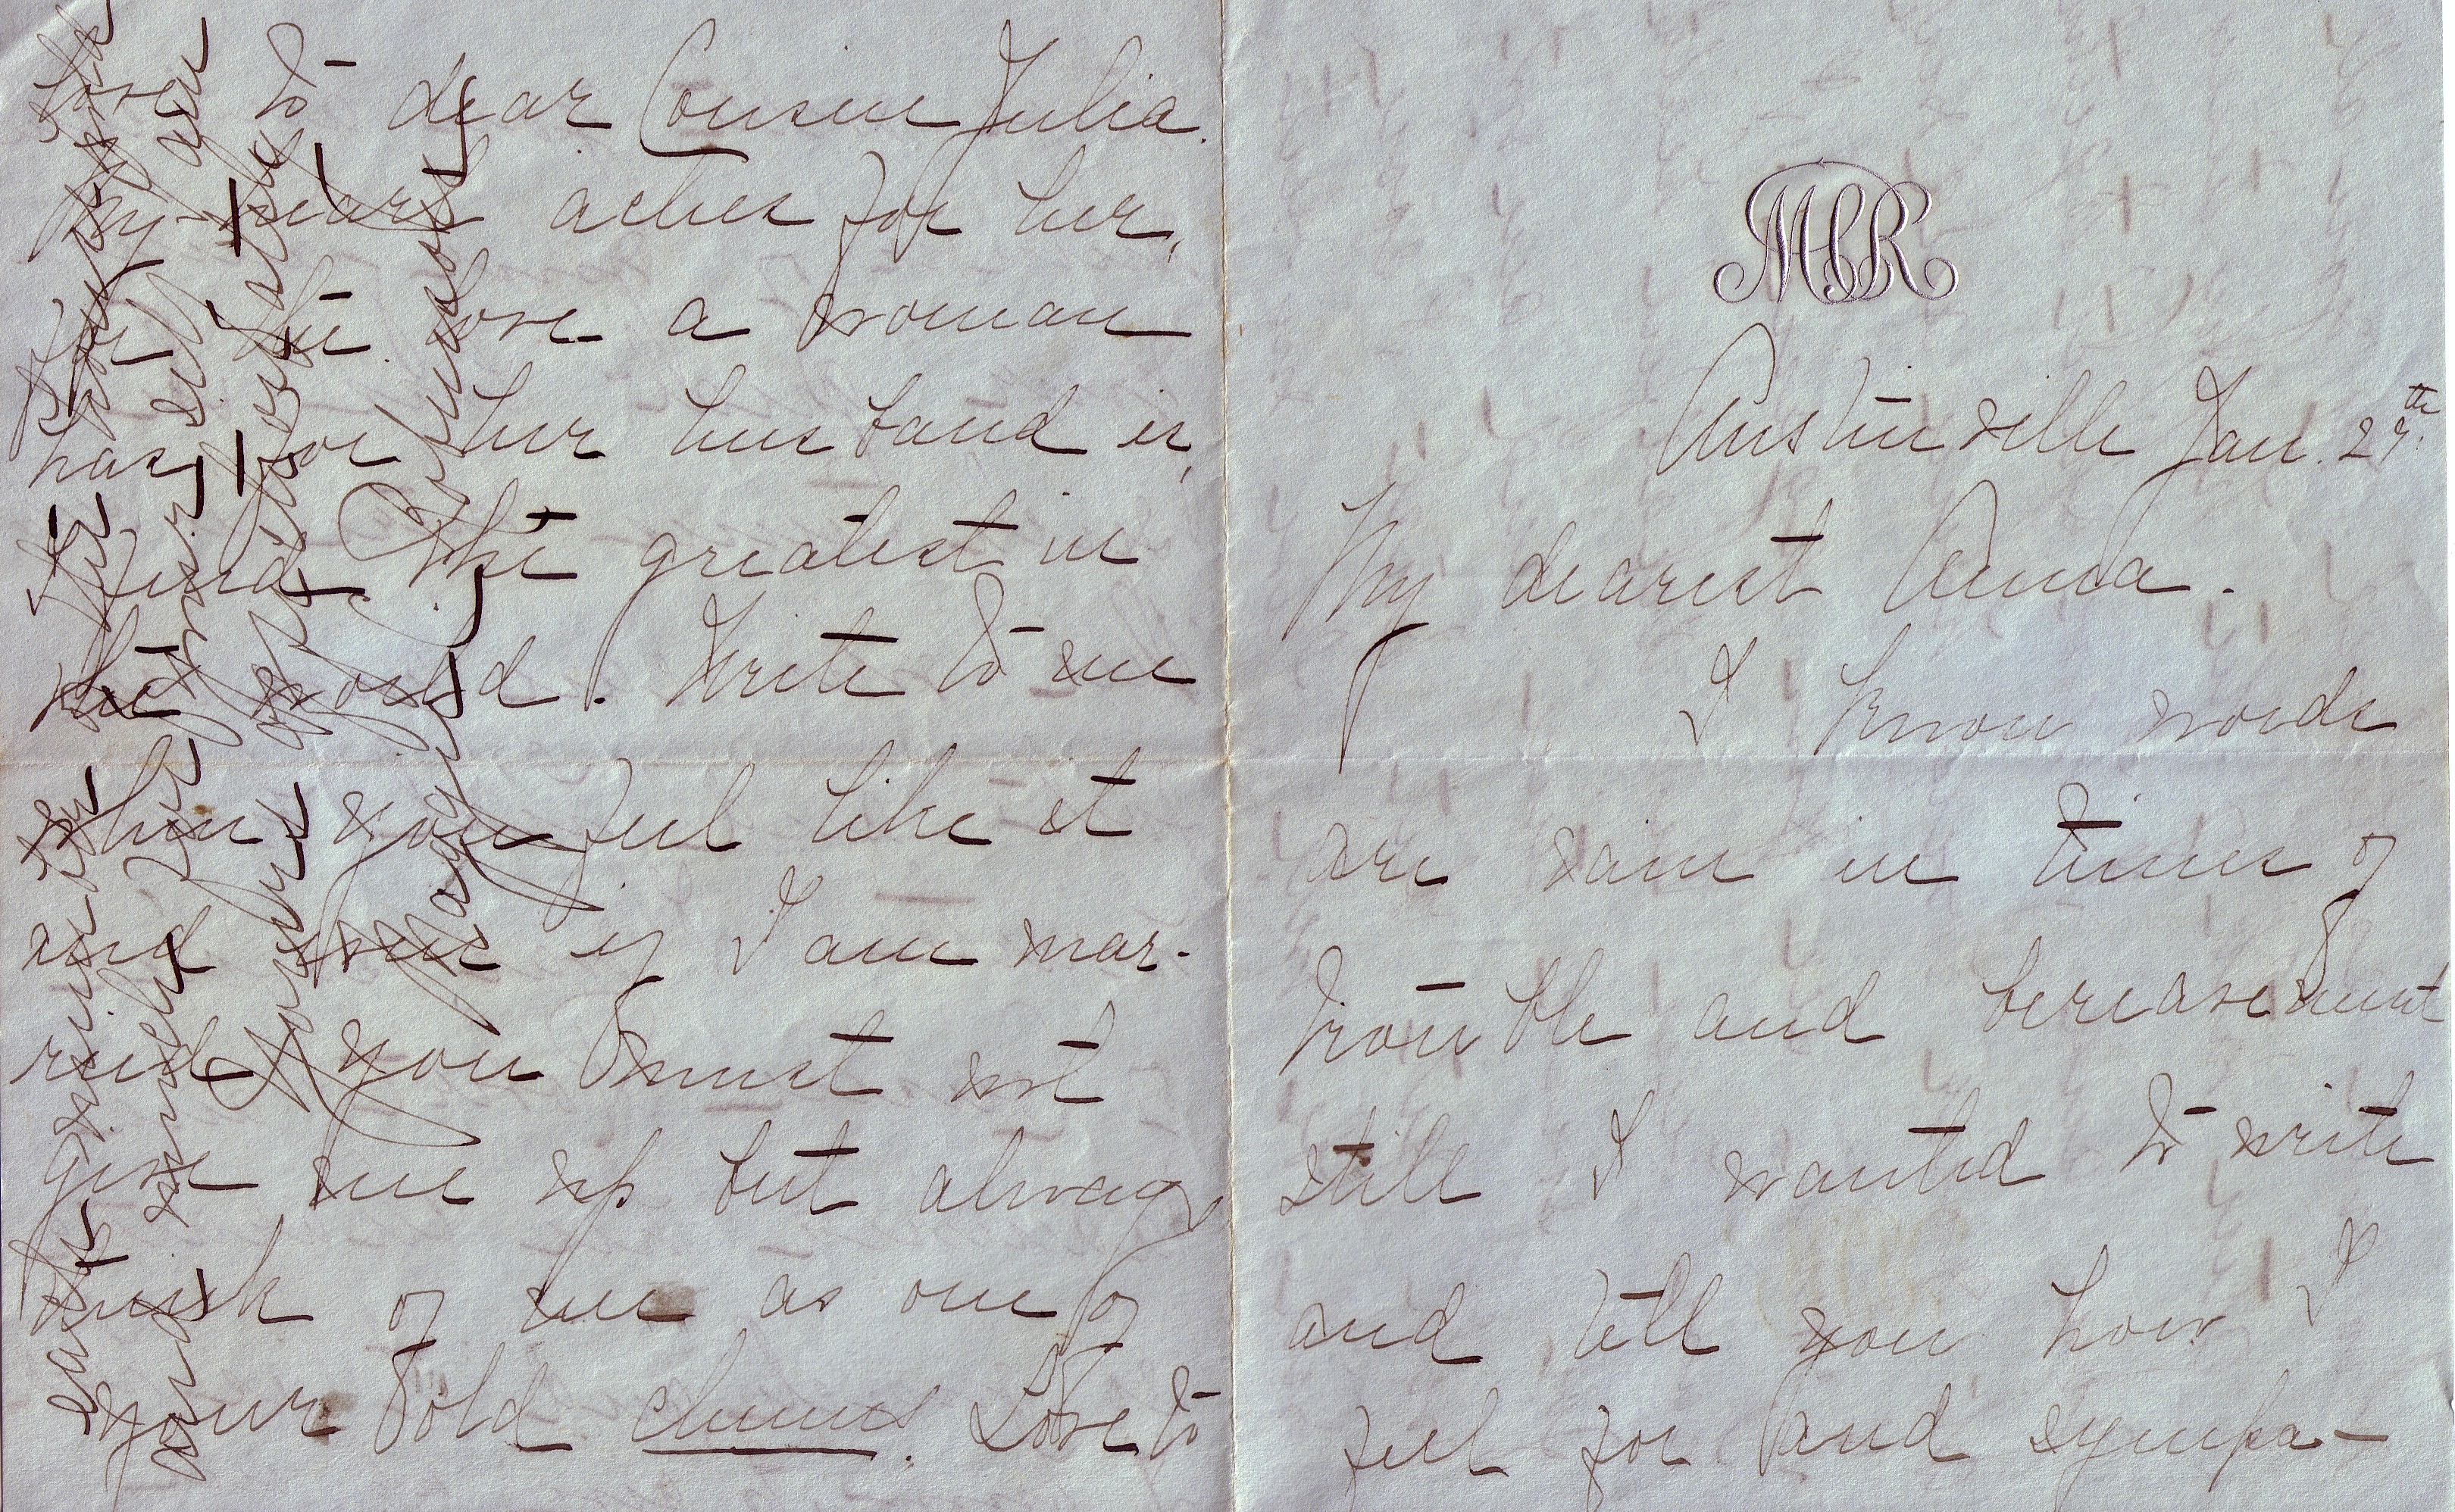 MCR
Austinville Jan. 27th
My dearest Anna.
I know words
are vain in times of
trouble and bereavement
still I wanted to write
and tell you how I
feel for and sympa-
love to dear Cousin Julia.
My heart aches for her,
for the love a woman
has for her husband is,
I find the greatest in
the world. Write to me
when you feel like it
and even if I am mar-
ried you must not
give me up but always
think of me as one of
your old chums. Love to
and much for yourself